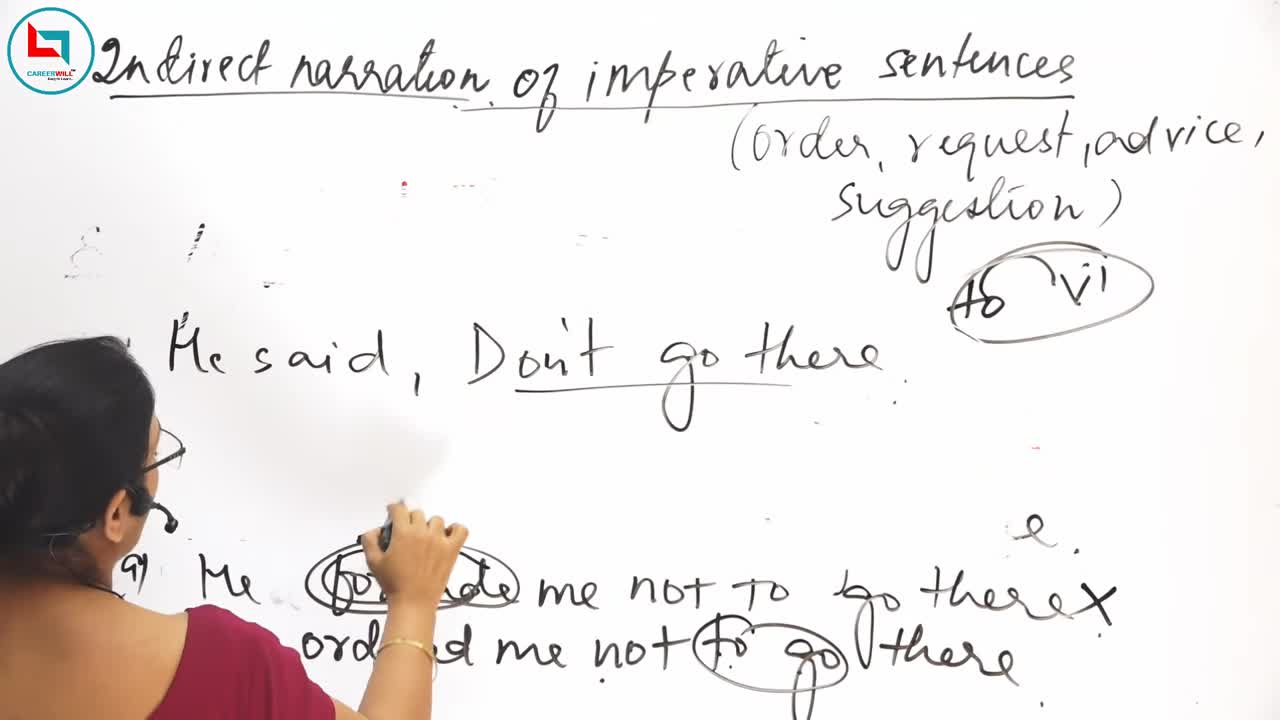 CAREERWILL
Indirect narration of imperative sentences
(order, request, advice,
suggestion)
to Vi
He said, Don't go there.
He me not to go there X
me not to go there